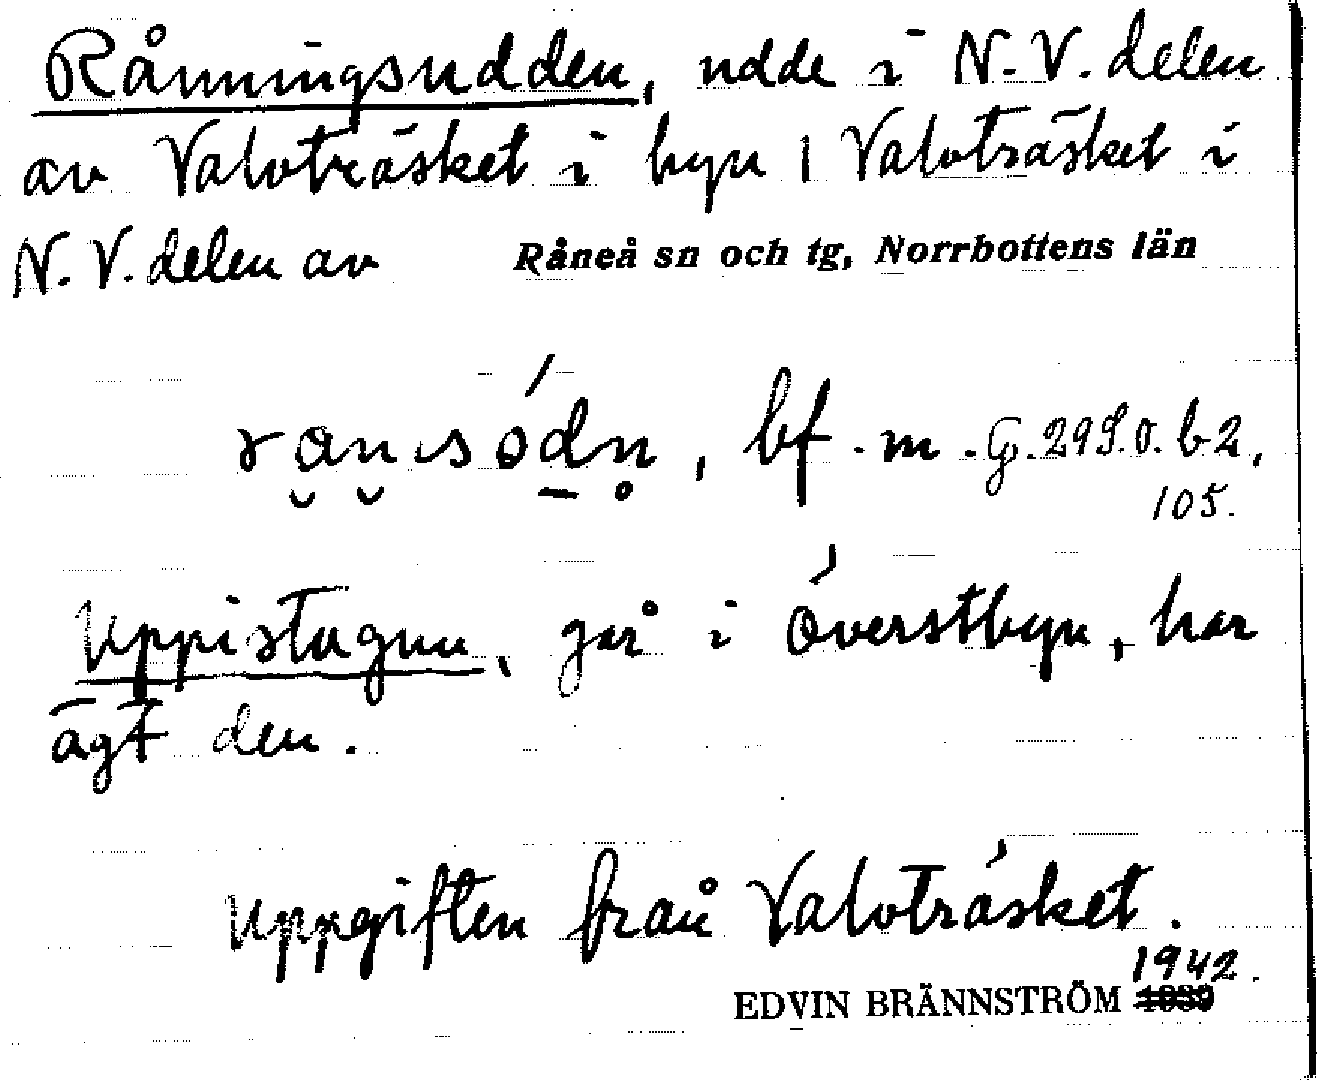 Rånningsudden, udde i N.V. delen
av Valvträsket i byn 1 Valvträsket i
N.V. delen av Råneå sn och tg, Norrbottens län
bf. m. G. 295.0. b 2,
105.
Uppistugun, går i överstbyn, har
ägt den.
Uppgiften från Valvträsket.
1942.
EDVIN BRÄNNSTRÖM 1939